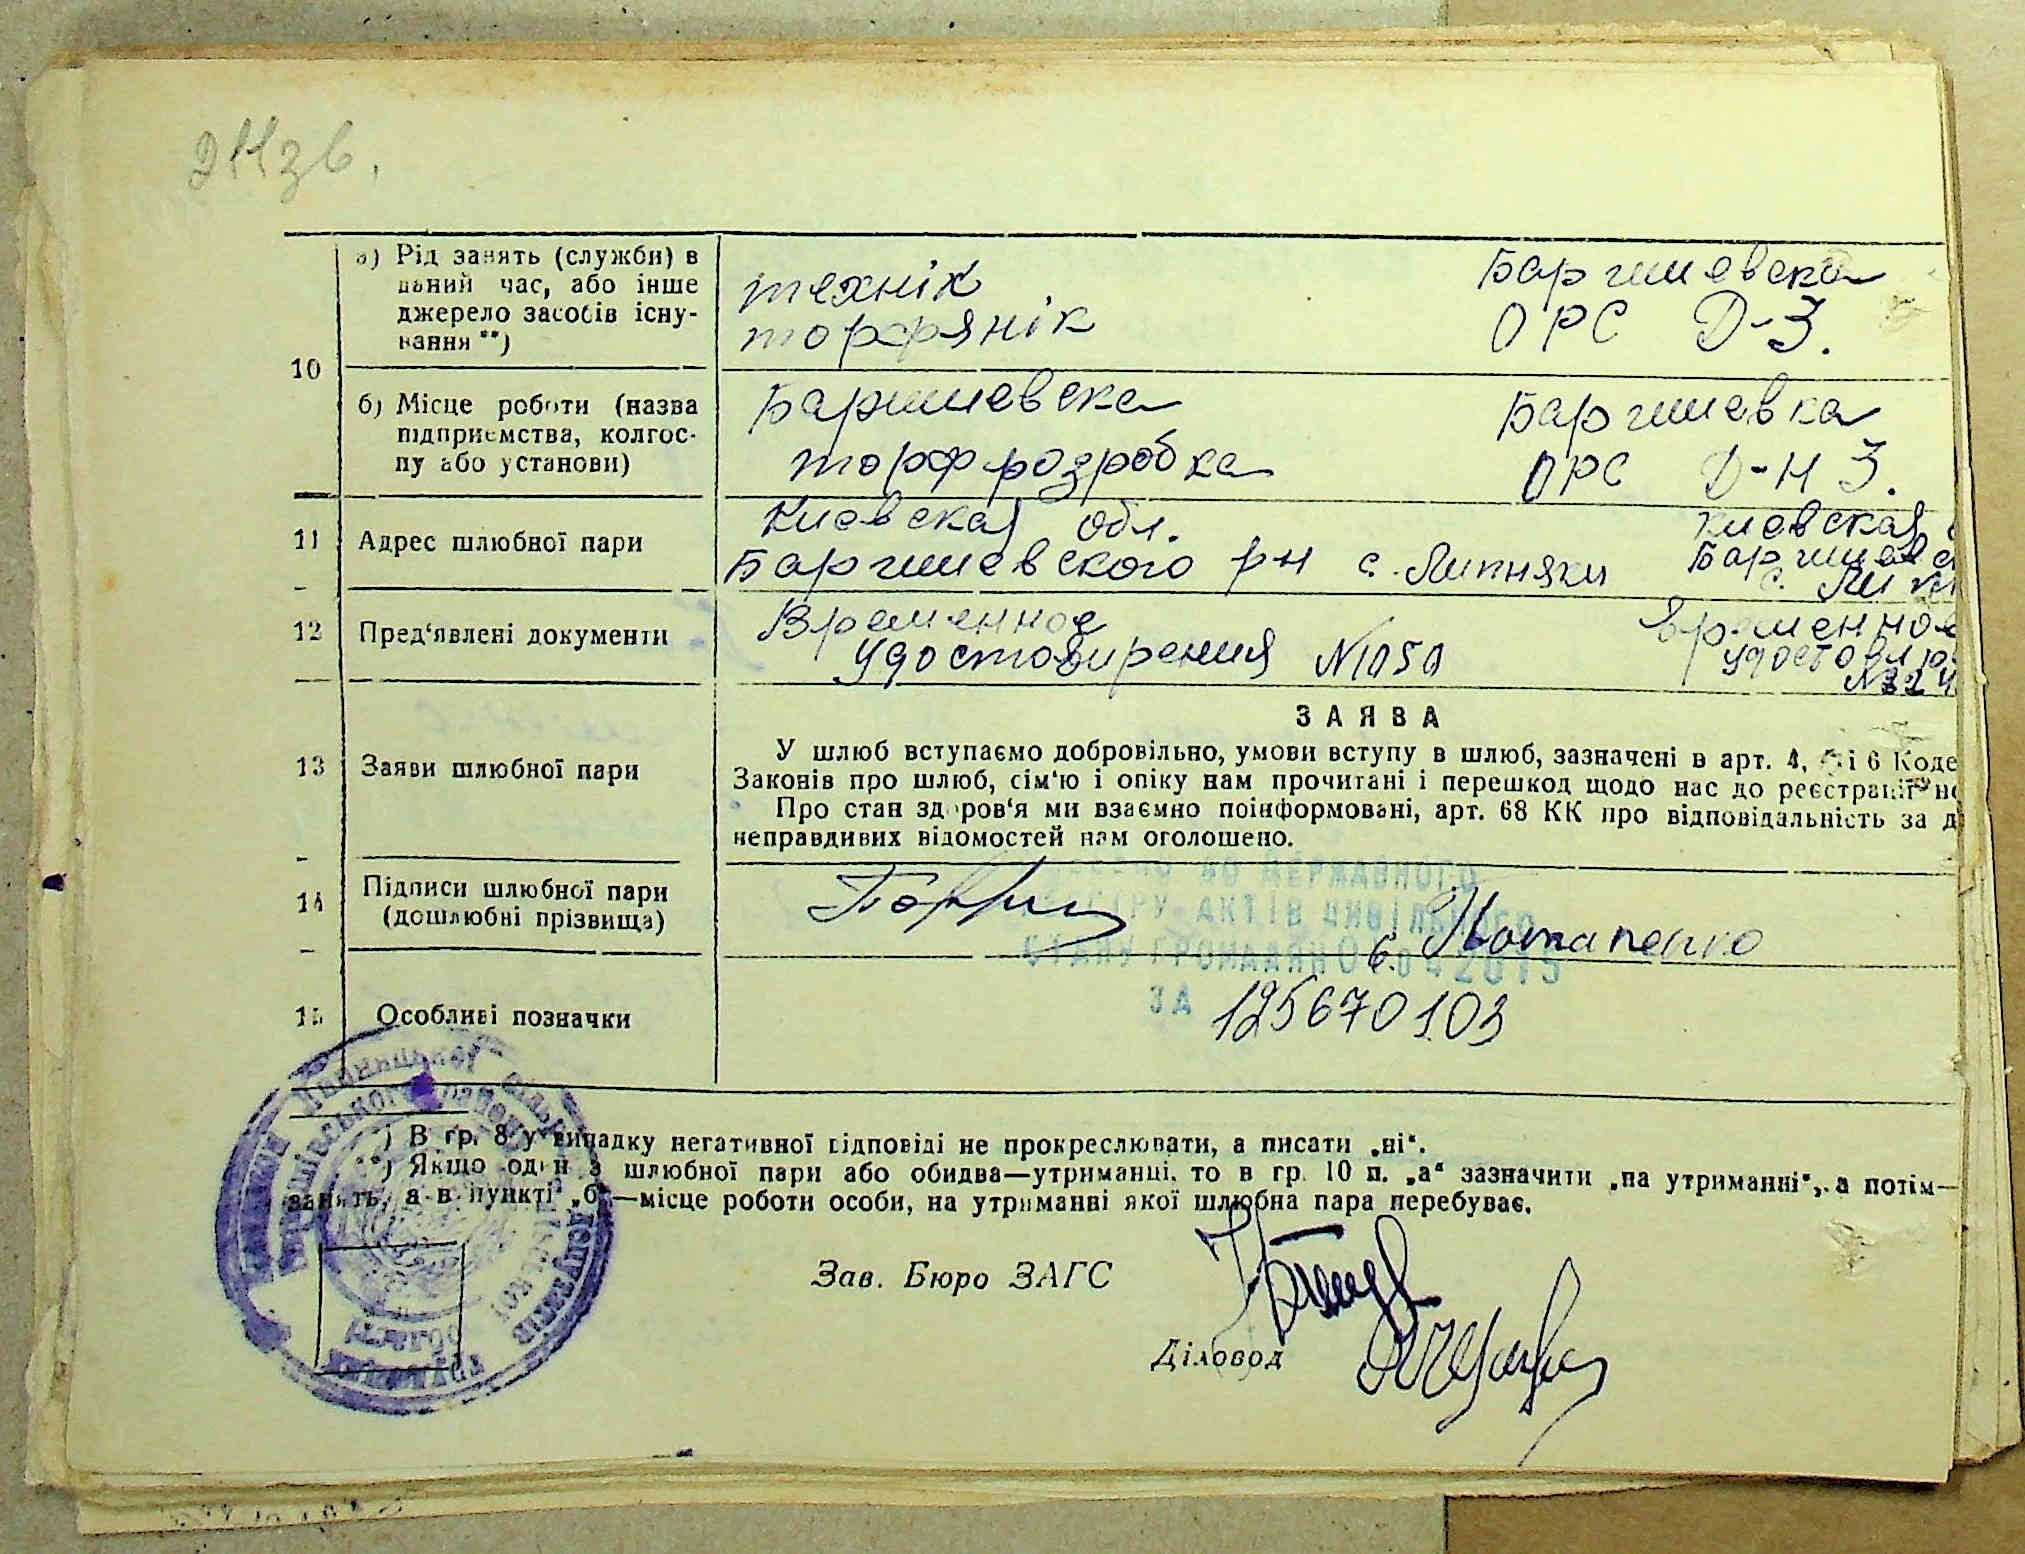 211зв.
а) Рід занять (служби) в
даний час, або інше
джерело засобів існу-
вання **)
технік
торфянік
Баришевска
ОРС Д-З.
10
б) Місце роботи (назва
підприємства, колгос-
пу або установи)
Баришевска
торфрозробка
Баришевка
ОРС Д-Н З.
11
Адрес шлюбної пари
Киевская обл.
Баришевского рн с. Липняки
Киевская
Баришевс
с.
12
Пред‘явлені документи
Временное
удостовирения N1050
временное
удостовир
13
Заяви шлюбної пари
ЗАЯВА
У шлюб вступаємо добровільно, умови вступу в шлюб, зазначені в арт. 4, 5 і 6 Коде
Законів про шлюб, сім‘ю і опіку нам прочитані і перешкод щодо нас до реєстрації не
Про стан здоров‘я ми взаємно поінформовані, арт. 68 КК про відповідальність за д
неправдивих відомостей нам оголошено.
14
Підписи шлюбної пари
(дошлюбні прізвища)
Потапенко
ВНЕСЕНО ДО ДЕРЖАВНОГО
РЕЄСТРУ АКТІВ ЦИВІЛЬНОГО
СТАНУ ГРОМАДЯН 06 04 2015
ЗА 125670103
15
Особливі позначки
*) В гр. 8 у випадку негативної відповіді не прокреслювати, а писати „ні“.
**) Якщо один з шлюбної пари або обидва—утриманці, то в гр. 10 п. „а“ зазначити „на утриманні“, а потім—
занять, а в пункті „б“—місце роботи особи, на утриманні якої шлюбна пара перебуває.
Зав. Бюро ЗАГС
Діловод